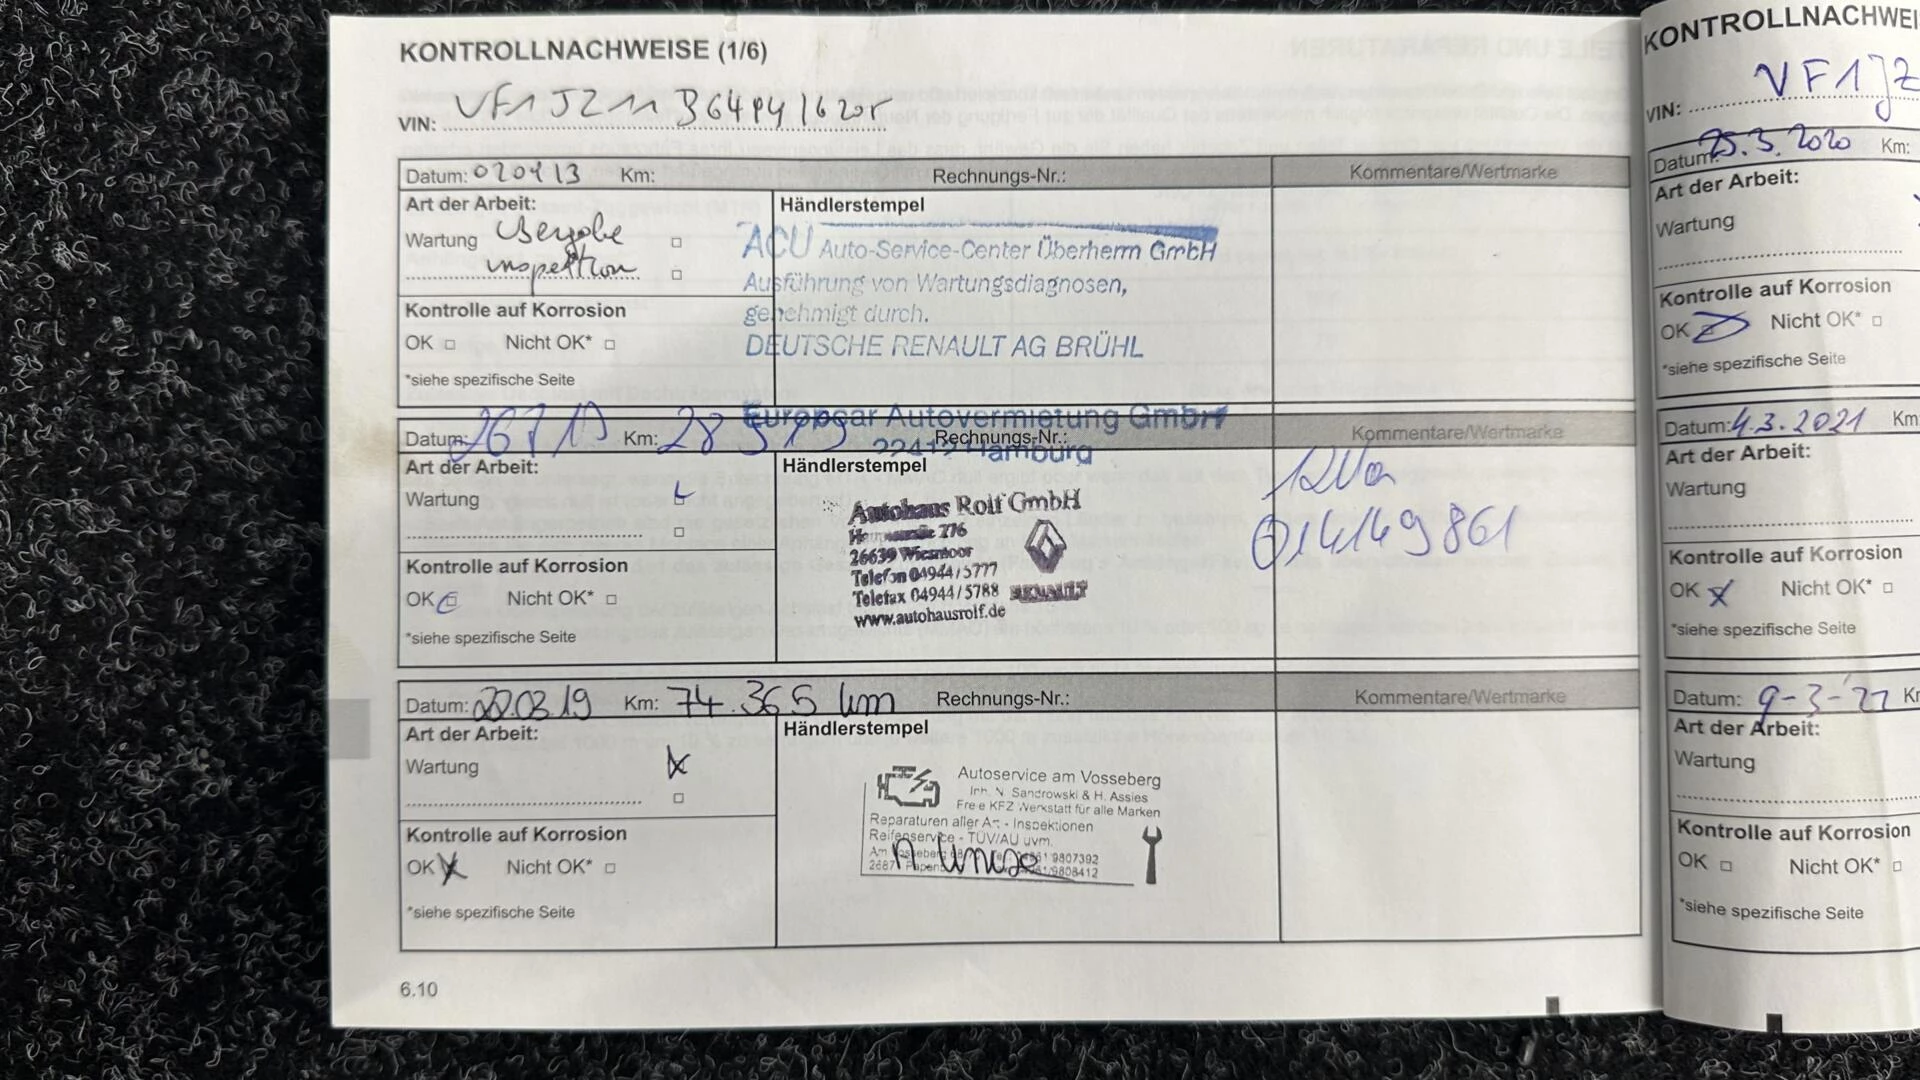 KONTROLLNACHWEISE (1/6)
VIN: VF1JZ11
Datum: 020413 Km: Rechnungs-Nr.: Kommentare/Wertmarke
Art der Arbeit:
Händlerstempel
Wartung
inspektion
ACU Auto-Service-Center Überherrn GmbH
Ausführung von Wartungsdiagnosen,
genehmigt durch.
DEUTSCHE RENAULT AG BRÜHL
Kontrolle auf Korrosion
OK Nicht OK*
*siehe spezifische Seite
Europcar Autovermietung GmbH
Hamburg
Datum: Km: Rechnungs-Nr.: Kommentare/Wertmarke
Art der Arbeit:
Händlerstempel
Wartung
Autohaus Rolf GmbH
776
26639 Wiesmoor
Telefon 04944/5777
Telefax 04944/5788 RENAULT
www.autohausrolf.de
Kontrolle auf Korrosion
OK Nicht OK*
*siehe spezifische Seite
Datum: 22.03.19 Km: 74.365 km Rechnungs-Nr.: Kommentare/Wertmarke
Art der Arbeit:
Händlerstempel
Wartung
Autoservice am Vosseberg
Inh. N. Sandrowski & H. Assies
Freie KFZ Werkstatt für alle Marken
Reparaturen aller Art - Inspektionen
Reifenservice - TÜV/AU uvm.
Kontrolle auf Korrosion
OK Nicht OK*
*siehe spezifische Seite
6.10
KONTROLLNACHWEI
VIN: VF1JZ
Datum: 25.3.2020 Km:
Art der Arbeit:
Wartung
Kontrolle auf Korrosion
OK Nicht OK*
*siehe spezifische Seite
Datum: 4.3.2021 Km
Art der Arbeit:
Wartung
Kontrolle auf Korrosion
OK Nicht OK*
*siehe spezifische Seite
Datum: 9-3-22
Art der Arbeit:
Wartung
Kontrolle auf Korrosion
OK Nicht OK*
*siehe spezifische Seite